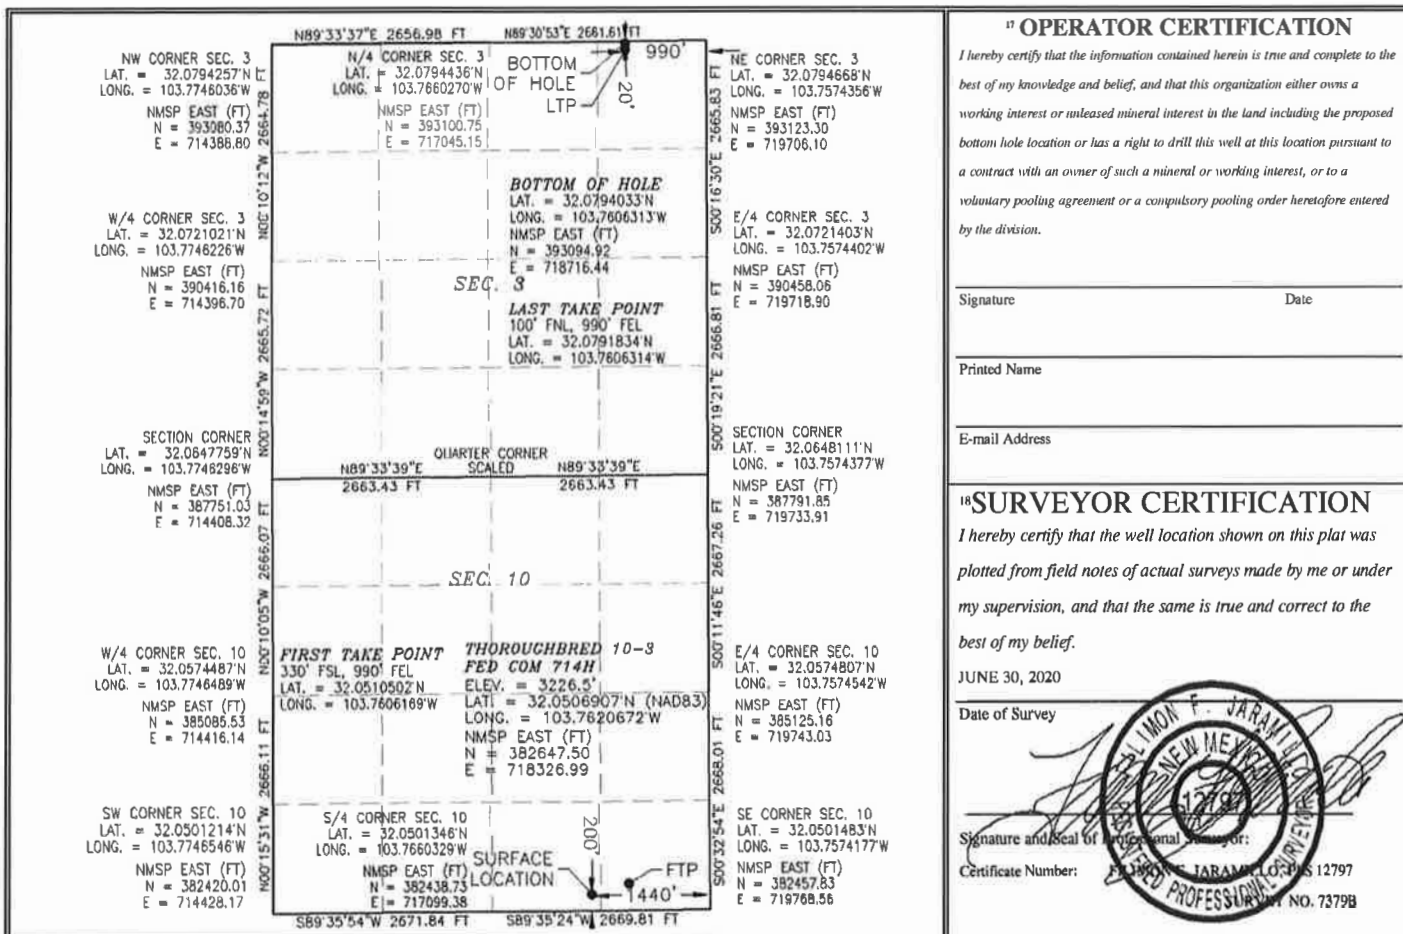 N89°33'37"E 2656.98 FT
N89°30'53"E 2661.61 FT
NW CORNER SEC. 3
LAT. = 32.0794257'N
LONG. = 103.7746036'W
NMSP EAST (FT)
N = 393080.37
E = 714388.80
N/4 CORNER SEC. 3
LAT. = 32.0794436'N
LONG. = 103.7660270'W
NMSP EAST (FT)
N = 393100.75
E = 717045.15
BOTTOM
OF HOLE
LTP
990'
20'
NE CORNER SEC. 3
LAT. = 32.0794668'N
LONG. = 103.7574356'W
NMSP EAST (FT)
N = 393123.30
E = 719706.10
N00°10'12"W 2664.78 FT
S00°16'30"E 2665.83 FT
BOTTOM OF HOLE
LAT. = 32.0794033'N
LONG. = 103.7606313'W
NMSP EAST (FT)
N = 393094.92
E = 718716.44
W/4 CORNER SEC. 3
LAT. = 32.0721021'N
LONG. = 103.7746226'W
NMSP EAST (FT)
N = 390416.16
E = 714396.70
E/4 CORNER SEC. 3
LAT. = 32.0721403'N
LONG. = 103.7574402'W
NMSP EAST (FT)
N = 390458.06
E = 719718.90
SEC. 3
LAST TAKE POINT
100' FNL, 990' FEL
LAT. = 32.0791834'N
LONG. = 103.7606314'W
N00°14'59"W 2665.72 FT
S00°19'21"E 2666.81 FT
SECTION CORNER
LAT. = 32.0647759'N
LONG. = 103.7746296'W
NMSP EAST (FT)
N = 387751.03
E = 714408.32
QUARTER CORNER
SCALED
N89°33'39"E
2663.43 FT
N89°33'39"E
2663.43 FT
SECTION CORNER
LAT. = 32.0648111'N
LONG. = 103.7574377'W
NMSP EAST (FT)
N = 387791.85
E = 719733.91
N00°10'05"W 2666.07 FT
S00°11'46"E 2667.26 FT
SEC. 10
W/4 CORNER SEC. 10
LAT. = 32.0574487'N
LONG. = 103.7746489'W
NMSP EAST (FT)
N = 385085.53
E = 714416.14
FIRST TAKE POINT
330' FSL, 990' FEL
LAT. = 32.0510502'N
LONG. = 103.7606169'W
THOROUGHBRED 10-3
FED COM 714H
ELEV. = 3226.5'
LAT. = 32.0506907'N (NAD83)
LONG. = 103.7620672'W
NMSP EAST (FT)
N = 382647.50
E = 718326.99
E/4 CORNER SEC. 10
LAT. = 32.0574807'N
LONG. = 103.7574542'W
NMSP EAST (FT)
N = 385125.16
E = 719743.03
N00°15'31"W 2666.11 FT
S00°32'54"E 2668.01 FT
SW CORNER SEC. 10
LAT. = 32.0501214'N
LONG. = 103.7746546'W
NMSP EAST (FT)
N = 382420.01
E = 714428.17
S/4 CORNER SEC. 10
LAT. = 32.0501346'N
LONG. = 103.7660329'W
NMSP EAST (FT)
N = 382438.73
E = 717099.38
SURFACE
LOCATION
200'
FTP
1440'
SE CORNER SEC. 10
LAT. = 32.0501483'N
LONG. = 103.7574177'W
NMSP EAST (FT)
N = 382457.83
E = 719768.56
S89°35'54"W 2671.84 FT
S89°35'24"W 2669.81 FT
17 OPERATOR CERTIFICATION
I hereby certify that the information contained herein is true and complete to the
best of my knowledge and belief, and that this organization either owns a
working interest or unleased mineral interest in the land including the proposed
bottom hole location or has a right to drill this well at this location pursuant to
a contract with an owner of such a mineral or working interest, or to a
voluntary pooling agreement or a compulsory pooling order heretofore entered
by the division.
Signature Date
Printed Name
E-mail Address
18 SURVEYOR CERTIFICATION
I hereby certify that the well location shown on this plat was
plotted from field notes of actual surveys made by me or under
my supervision, and that the same is true and correct to the
best of my belief.
JUNE 30, 2020
Date of Survey
FILIMON F. JARAMILLO
NEW MEXICO
12797
LICENSED PROFESSIONAL SURVEYOR
Signature and Seal of Professional Surveyor:
Certificate Number: FILIMON F. JARAMILLO, PLS 12797
SURVEY NO. 7379B